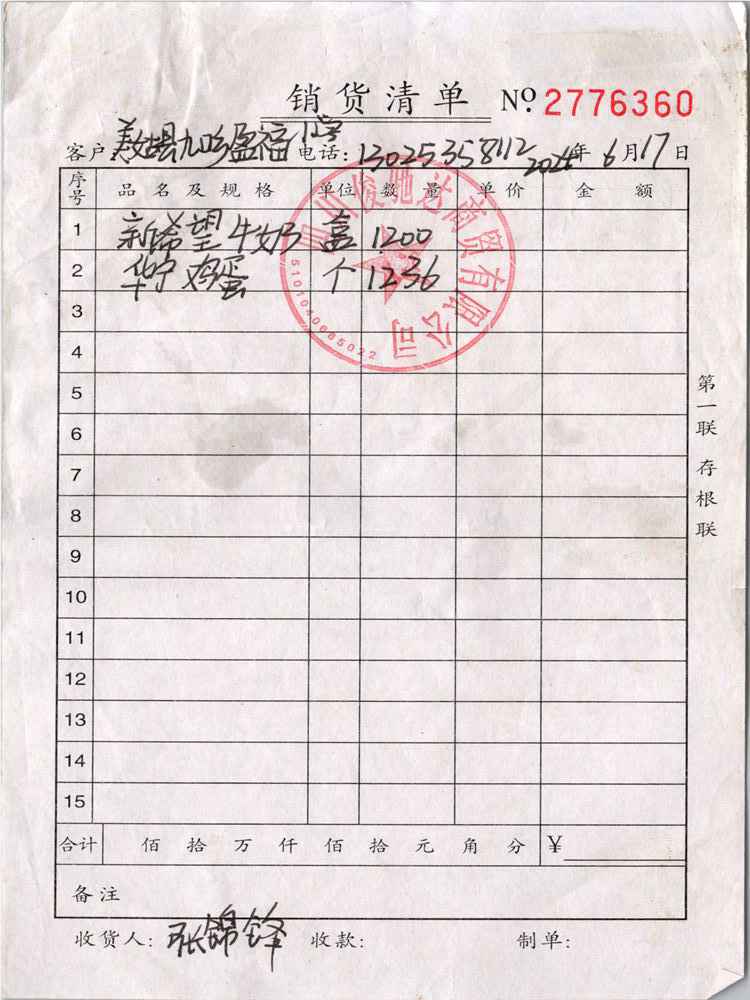 销货清单 № 2776360
客户: 县九 盈福小学 电话: 13025358112 年 6 月 17 日
序号 品名及规格 单位 数量 单价 金额
1 新希望牛奶 盒 1200
2 华宁鸡蛋 个 1236
3
4
5
6
7
8
9
10
11
12
13
14
15
合计 佰 拾 万 仟 佰 拾 元 角 分 ¥
备注
收货人: 张锦锋 收款: 制单:
第一联 存根联
四川骏驰达商贸有限公司
5101040065022